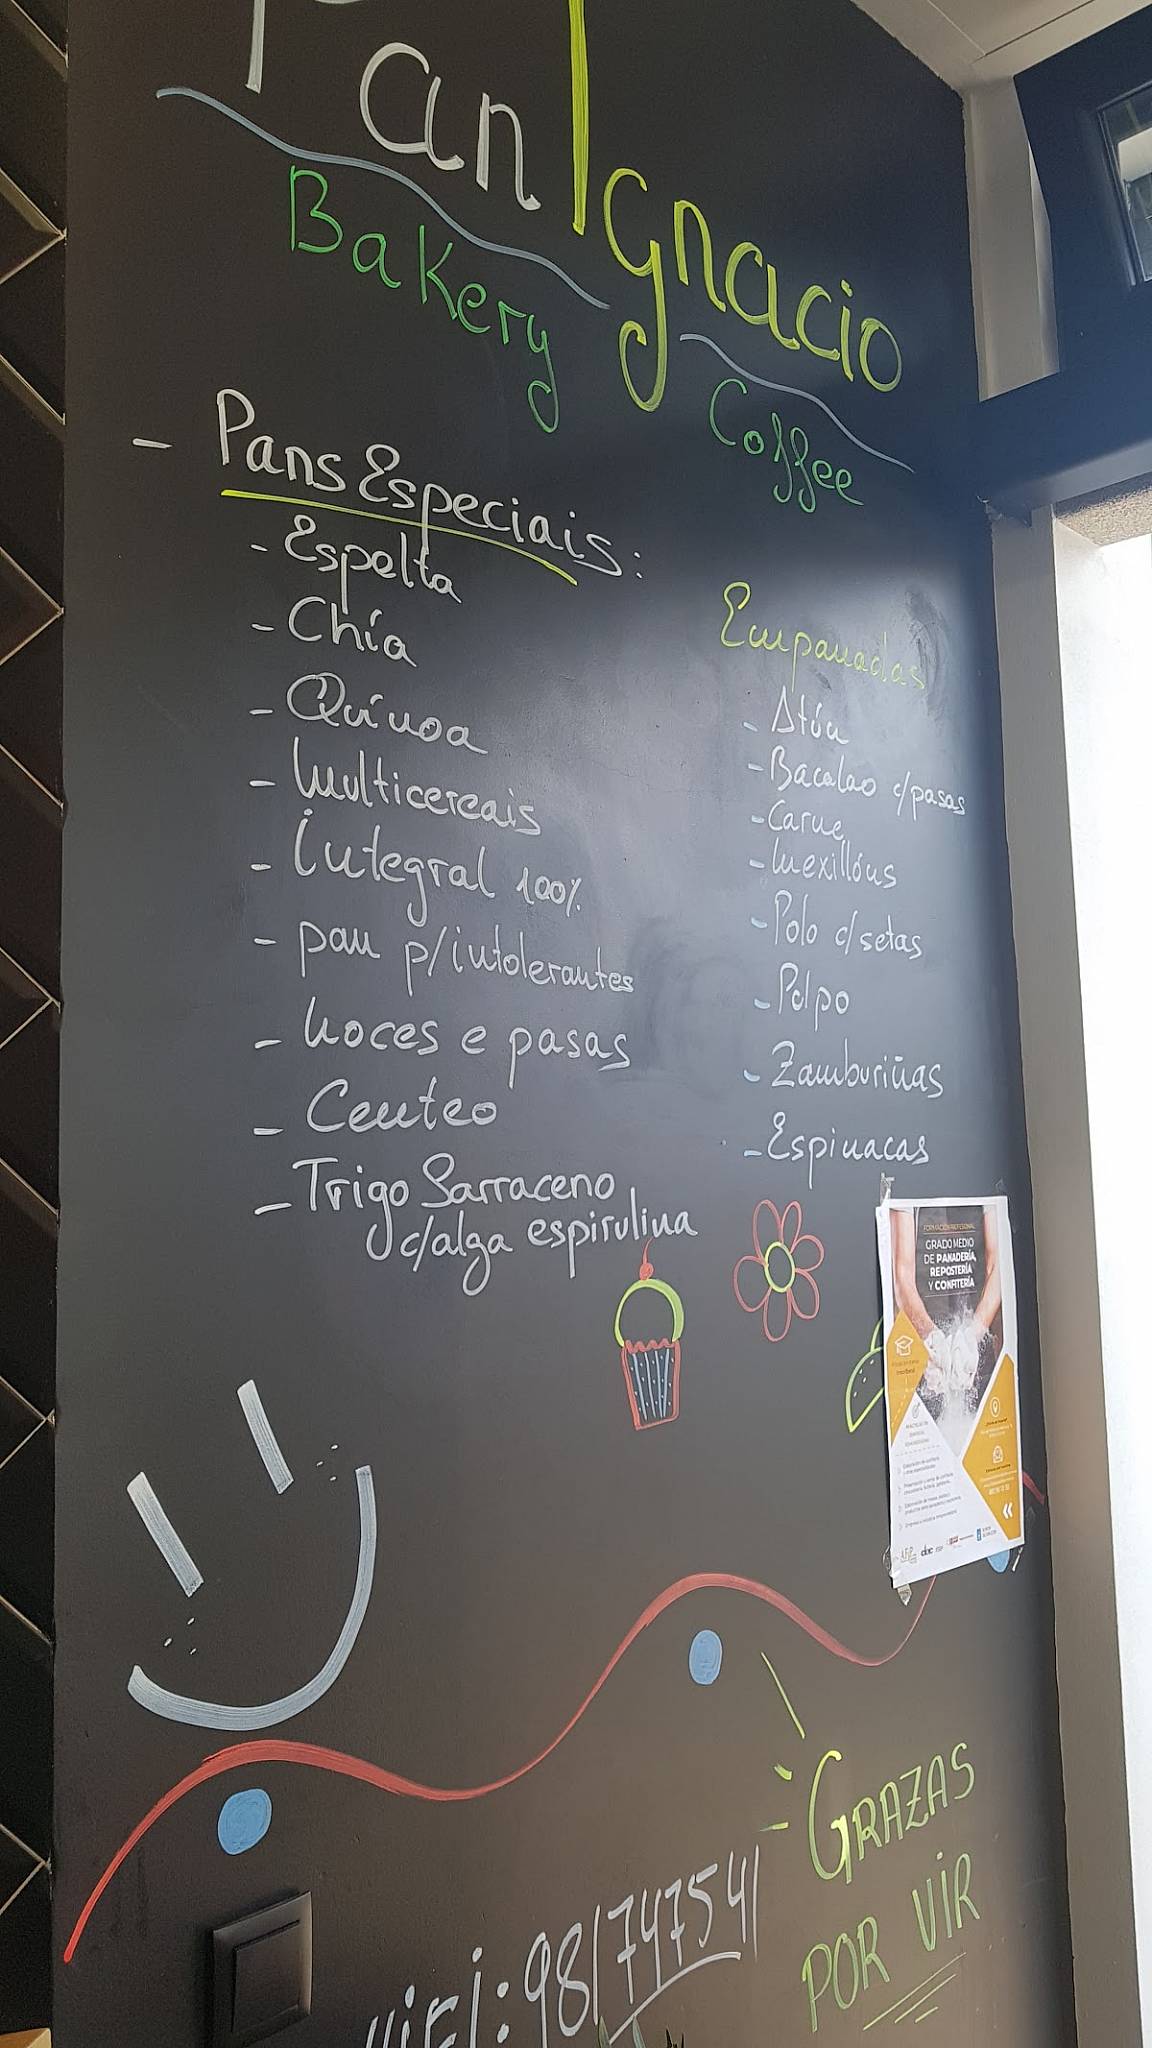 Pan Ignacio
Bakery
Coffee
- Pans Especiais:
- Espelta
- Chía
- Quinoa
- Multicereais
- Integral 100%
- pan p/intolerantes
- Noces e pasas
- Centeo
- Trigo Sarraceno
c/alga espirulina
Empanadas
- Atún
- Bacalao c/pasas
- Carne
- Mexillóns
- Polo c/setas
- Polpo
- Zamburiñas
- Espinacas
FORMACIÓN PROFESIONAL
GRADO MEDIO
DE PANADERÍA,
REPOSTERÍA
Y CONFITERÍA
GRAZAS
POR VIR
WiFi: 981747541